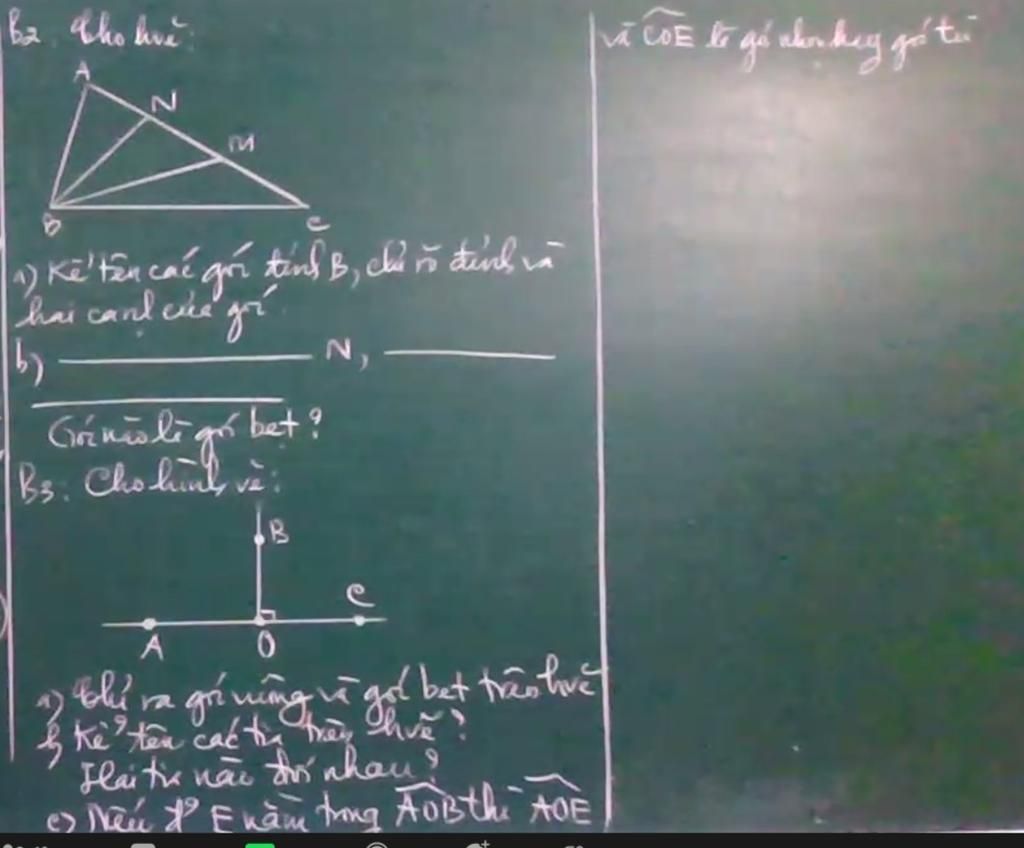 B2: Cho hvẽ:
A
N
M
B
C
a) Kể tên các góc đỉnh B, chỉ rõ đỉnh và
hai cạnh của góc.
b) ________ N, ________
________
Góc nào là góc bẹt?
B3: Cho hình vẽ:
B
C
A
O
a) Chỉ ra góc vuông và góc bẹt trên hvẽ
b) Kể tên các tia trên hvẽ?
Hai tia nào đối nhau?
c) Nếu đ' E nằm trong AOB thì AOE
và COE là góc nhọn hay góc tù